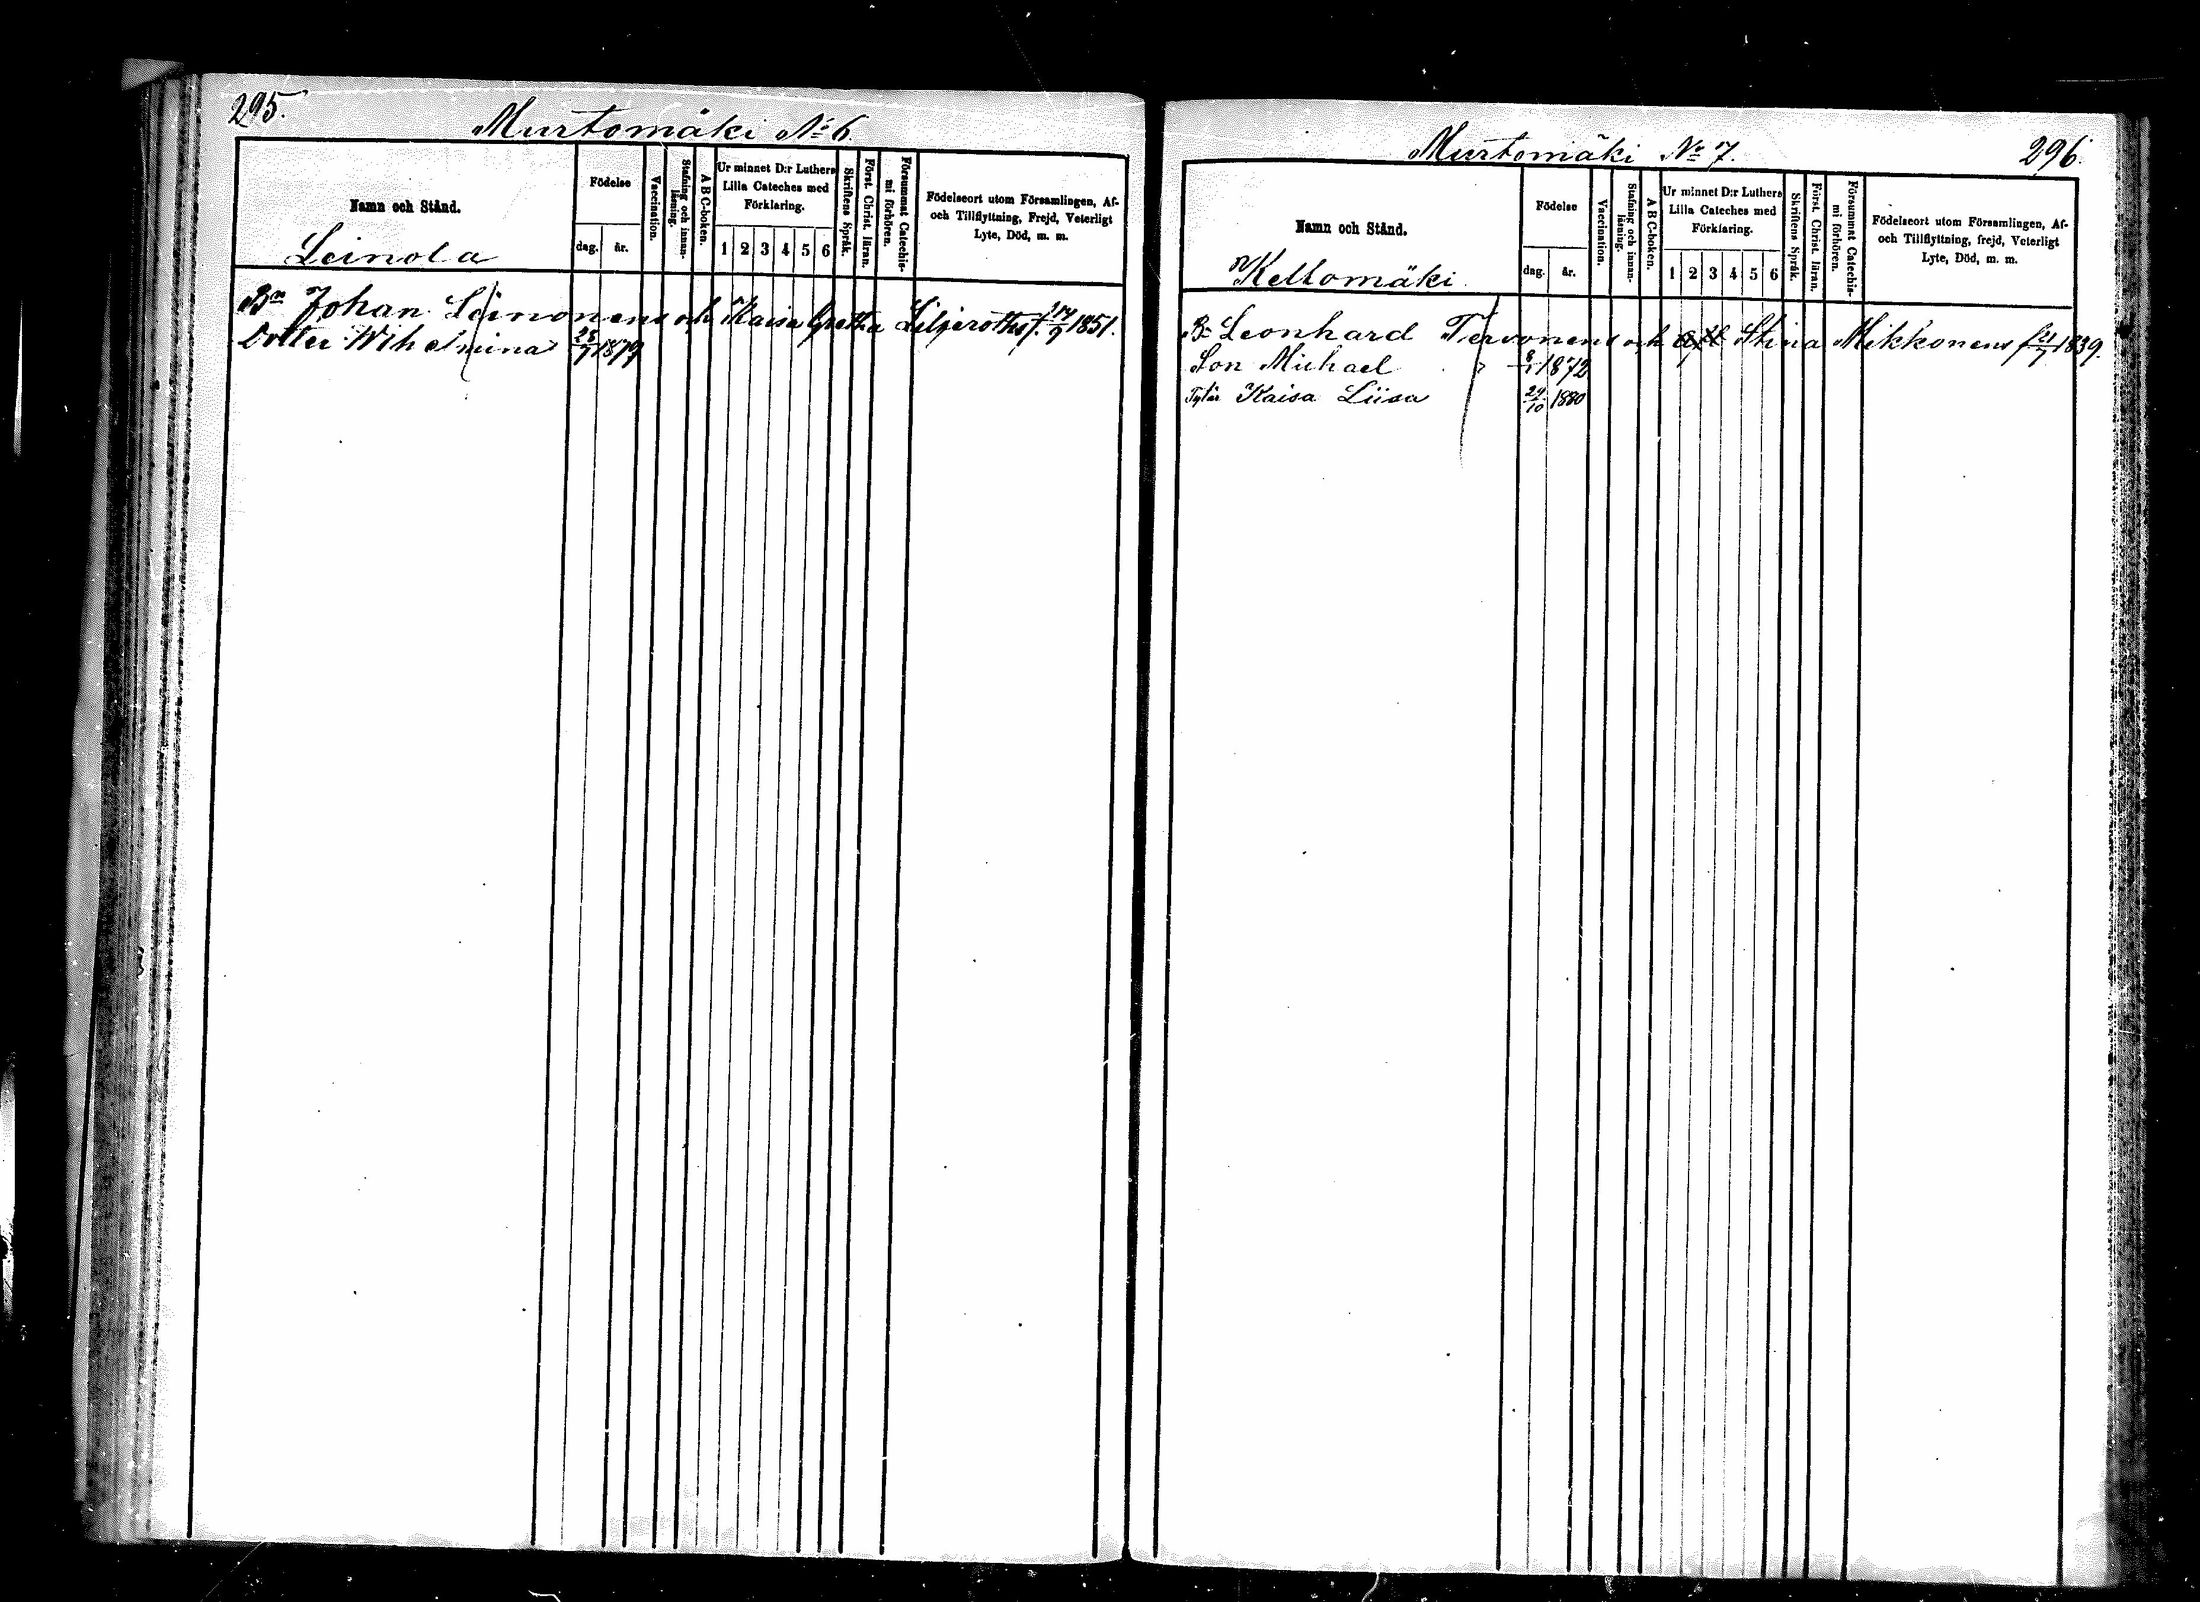 295.
Murtomäki No 6.
Namn och Stånd.
Leinola
Födelse
dag. år.
Vaccination.
Stafning och innan-
läsning.
A B C-boken.
Ur minnet D:r Luthers
Lilla Cateches med
Förklaring.
1 2 3 4 5 6
Skriftens Språk.
Först. Christ. läran.
Försummat Catechis-
mi förhören.
Födelseort utom Församlingen, Af-
och Tillflyttning, Frejd, Veterligt
Lyte, Död, m. m.
Bn Johan Leinonens och Kaisa Gretha Liljeroths f. 1851.
Dotter Wilhelmina 1879
Murtomäki No 7.
296.
Namn och Stånd.
Keltomäki
Födelse
dag. år.
Vaccination.
Stafning och innan-
läsning.
A B C-boken.
Ur minnet D:r Luthers
Lilla Cateches med
Förklaring.
1 2 3 4 5 6
Skriftens Språk.
Först. Christ. läran.
Försummat Catechis-
mi förhören.
Födelseort utom Församlingen, Af-
och Tillflyttning, frejd, Veterligt
Lyte, Död, m. m.
Leonhard Tervonens och Stina Mikkonens 1839.
Son Michael 1872
Tytär Kaisa Liisa 24/10 1880